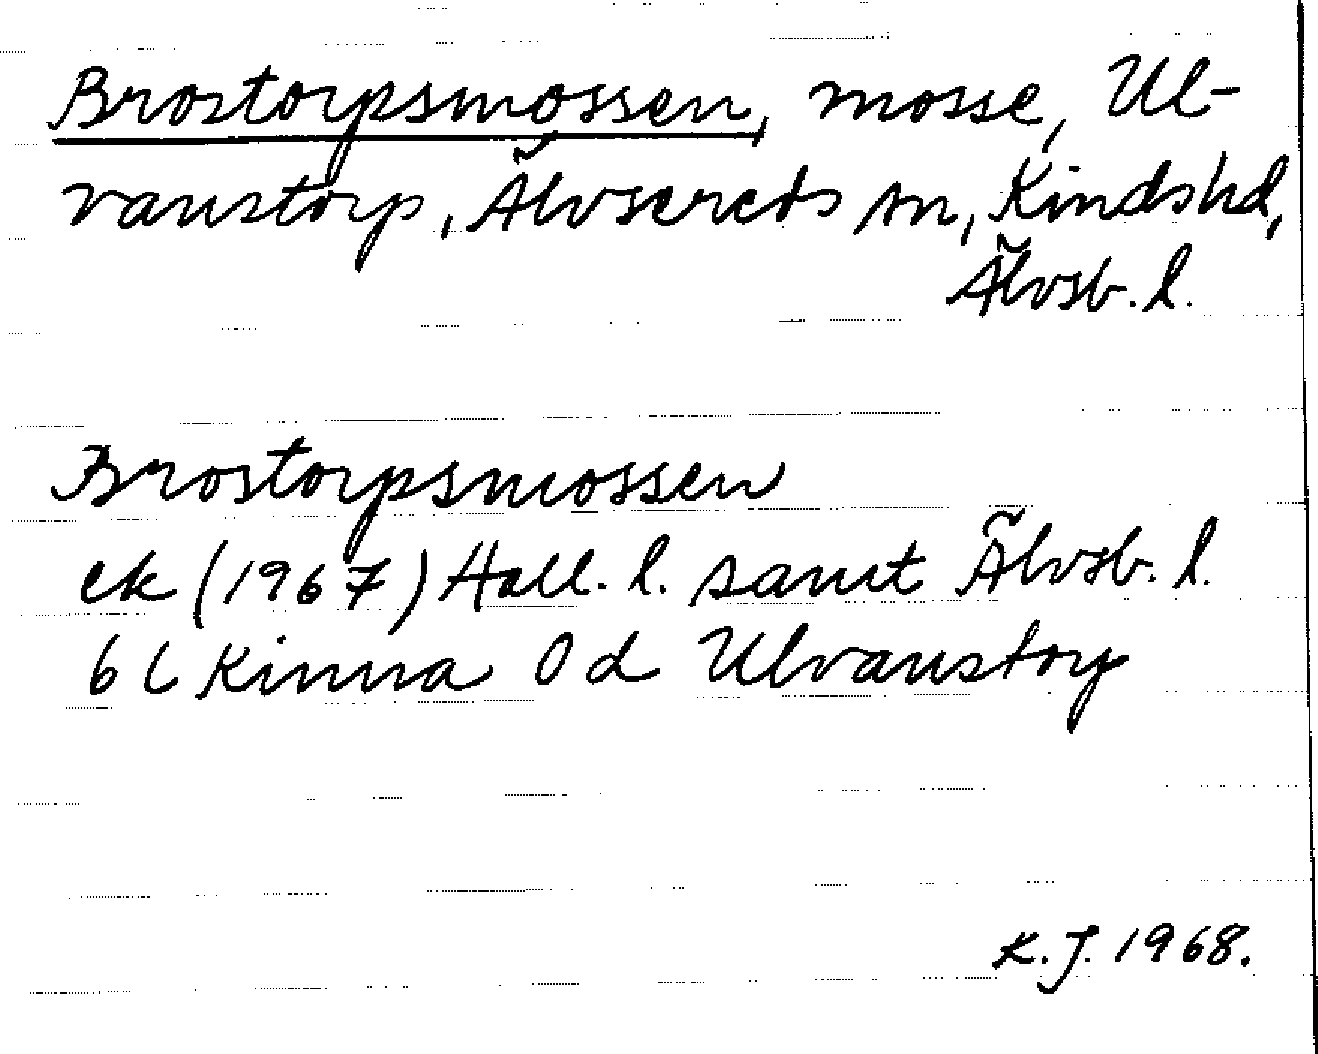 Brostorpsmossen, mosse, Ul-
vanstorp, Älvsereds sn, Kinds hd,
Älvsb. l.
Brostorpsmossen
ek (1967) Hall. l. samt Älvsb. l.
6 C Kinna 0 d Ulvanstorp
K. J. 1968.